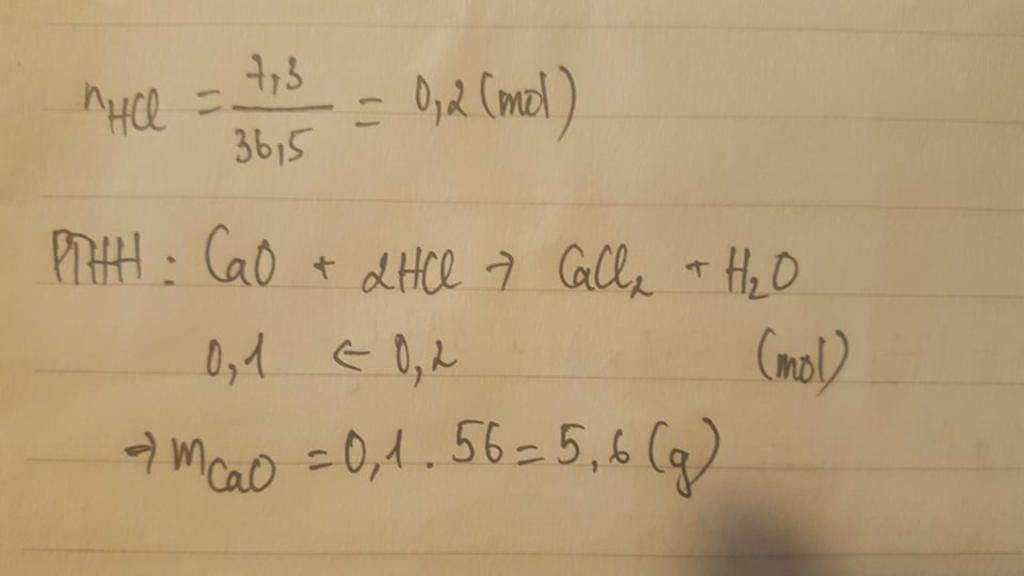 nHCl = 7,3/36,5 = 0,2 (mol)
PTHH : CaO + 2HCl → CaCl₂ + H₂O
0,1 ← 0,2 (mol)
→ mCaO = 0,1 . 56 = 5,6 (g)